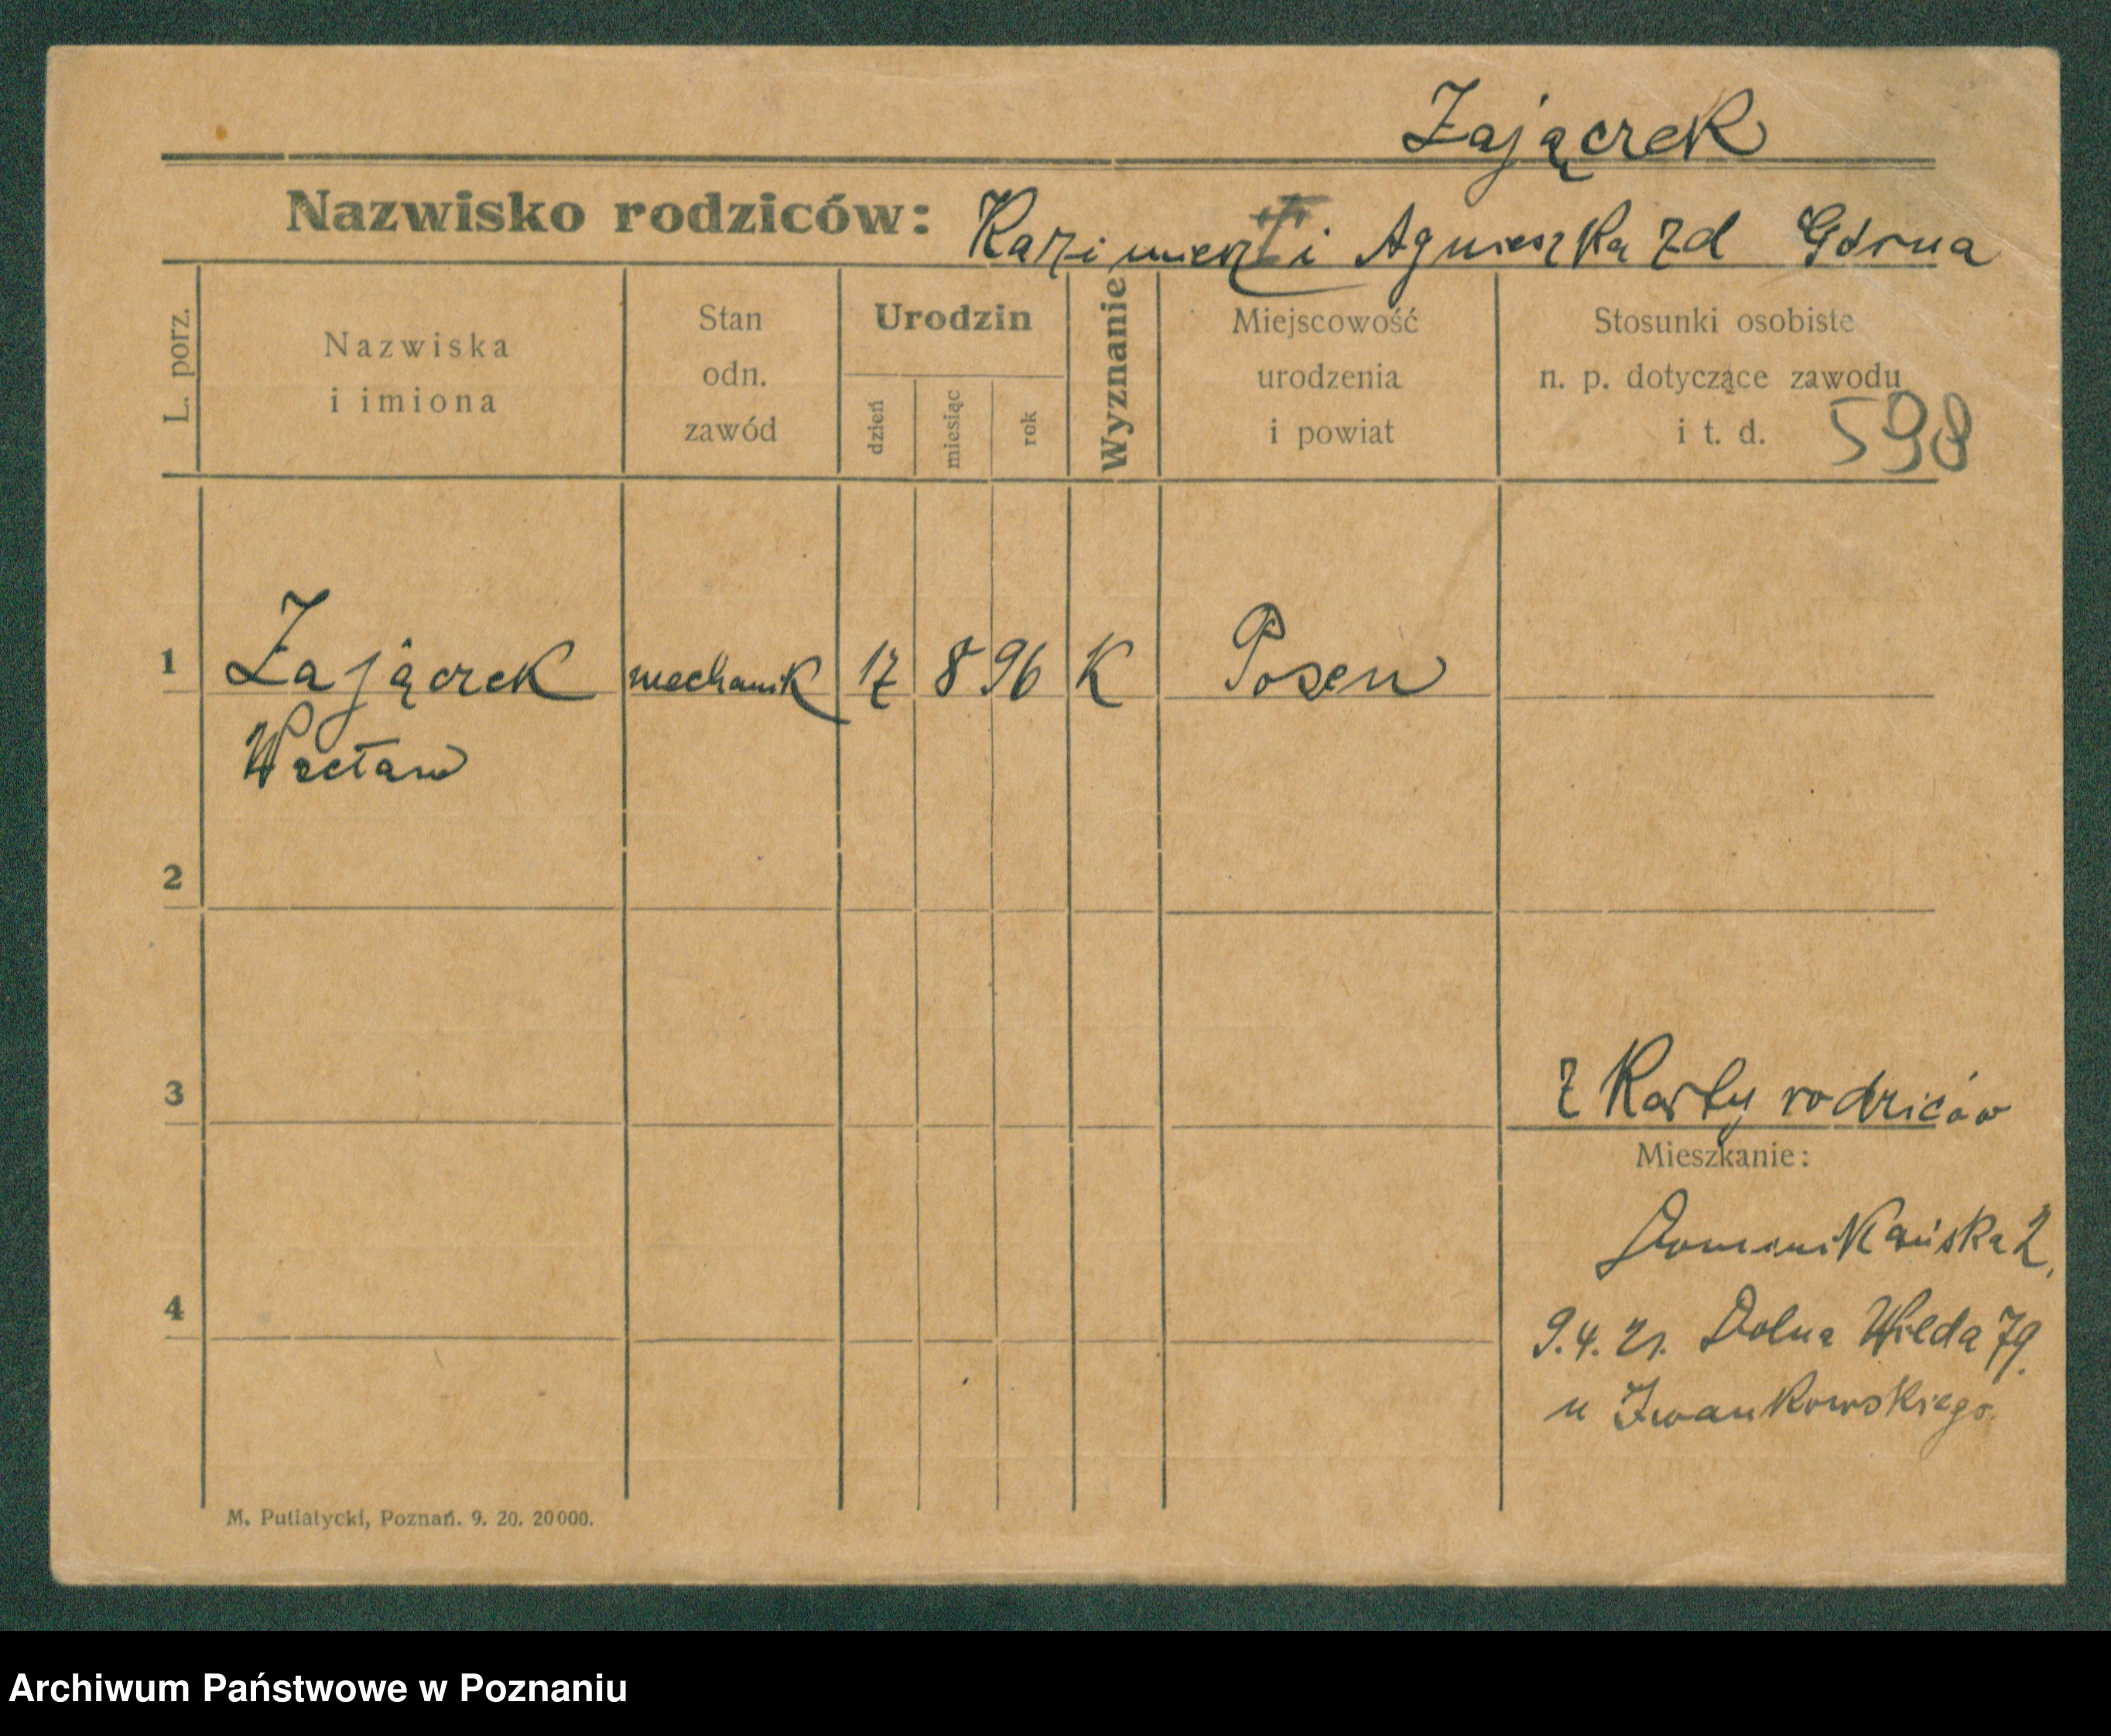 Zającrek
Nazwisko rodziców: Kazimierz † i Agnieszka zd Górna
L. porz.
Nazwiska
i imiona
Stan
odn.
zawód
Urodzin
dzień
miesiąc
rok
Wyznanie
Miejscowość
urodzenia
i powiat
Stosunki osobiste
n. p. dotyczące zawodu
i t. d.
598
1 Zającrek mechanik 17 8 96 K Posen
Wacław
2
3
z Karty rodziców
Mieszkanie:
Dominikańska 2,
4
9.4.21. Dolna Wilda 79.
u Iwankowskiego.
M. Putiatycki, Poznań. 9. 20. 20000.
Archiwum Państwowe w Poznaniu